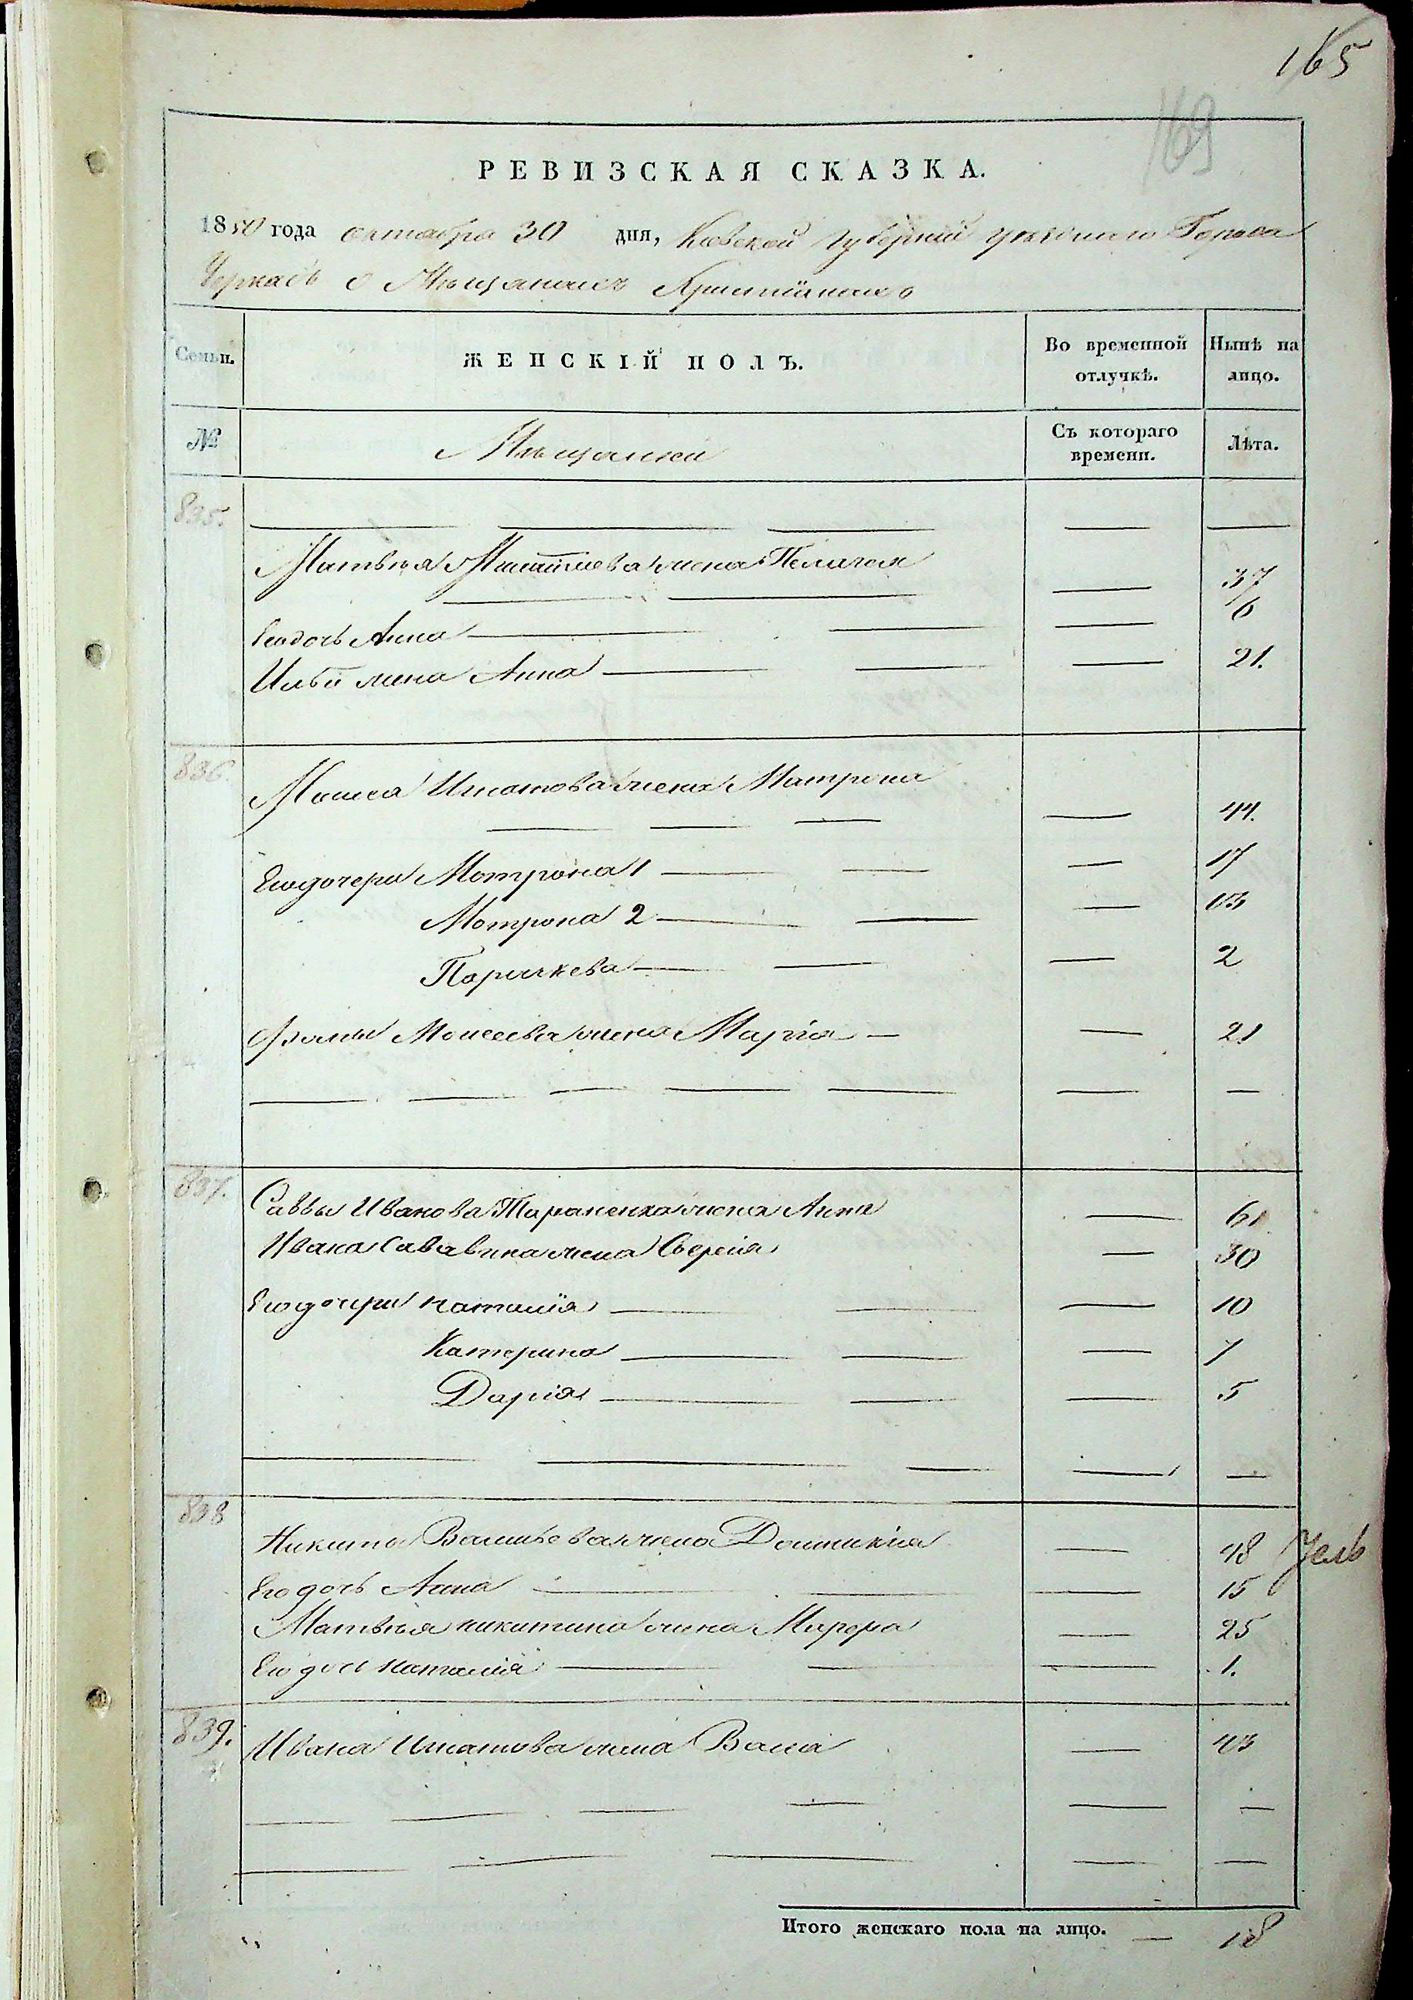 165
169
РЕВИЗСКАЯ СКАЗКА.
1850 года октября 30 дня, Киевской губернии уездного Города
Черкасъ о Мещанахъ Христианахъ
Семьи. ЖЕНСКІЙ ПОЛЪ. Во временной отлучкѣ. Нынѣ на лицо.
№ Мещанки Съ котораго времени. Лѣта.
835.
Матвея жена Пелагея 37
Его дочь Анна 6
Ильи жена Анна 21.
836.
Мойсея Игнатова жена Матрона 44.
Его дочери Мотрона 1 17
Мотрона 2 13
Параскева 2
Фомы Моисеева жена Марiя 21
837.
Саввы Иванова Тараненка жена Анна 61
Ивана Саввина жена 30
Его дочери Наталiя 10
Катерина 7
Дарiя 5
838
Никиты Васильева жена Домникiя 48
Его дочь Анна 15
Матвея Никитина жена Марфа 25
Его дочь Наталiя 1.
839.
Ивана Игнатова жена Васса 43
Итого женскаго пола на лицо. 18